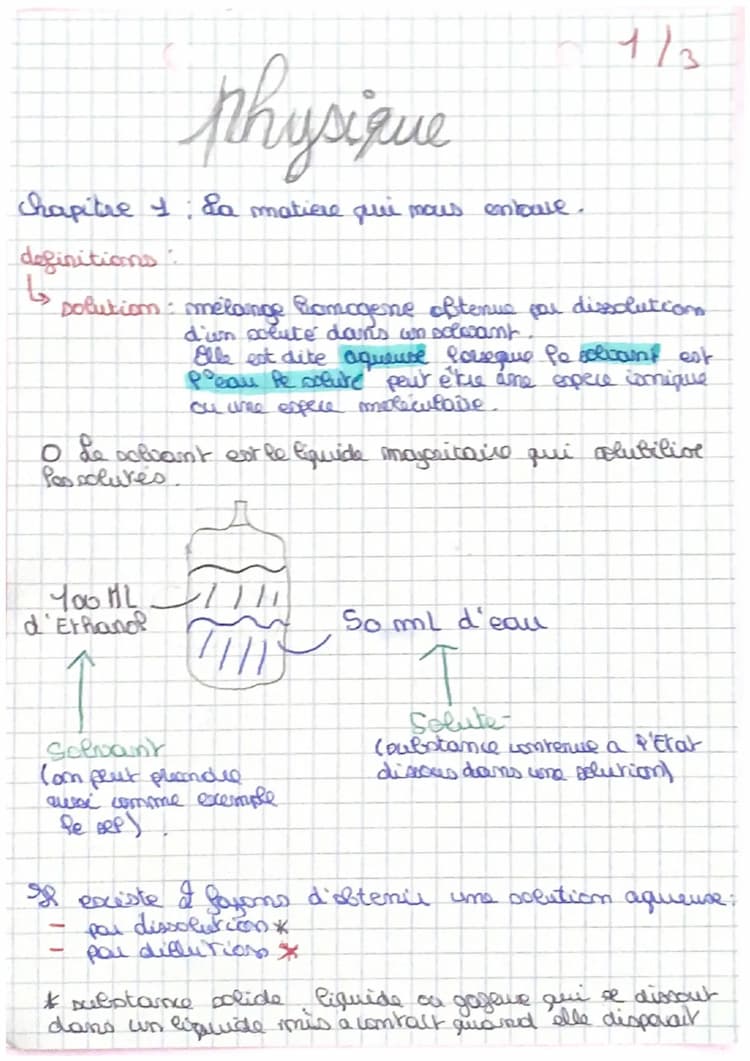 1/3
physique
Chapitre 1 : La matiere qui nous entoure.
definitions :
↳ solution : mélange homogene obtenue par dissolution
d'un soluté dans un solvant.
Elle est dite aqueuse lorsque le solvant est
l'eau le soluté peut être une espece ionique
ou une espece moléculaire.
O Le solvant est le liquide majoritaire qui solubilise
les solutés.
100 ML
d'Ethanol
50 mL d'eau
Solvant
(on peut prendre
aussi comme exemple
le sel).
Soluté
(substance contenue a l'Etat
dissous dans une solution)
Il existe 2 façons d'obtenir une solution aqueuse :
- par dissolution *
- par dillution *
* substance solide liquide ou gazeuse qui se dissout
dans un liquide mis a contact quand elle disparait